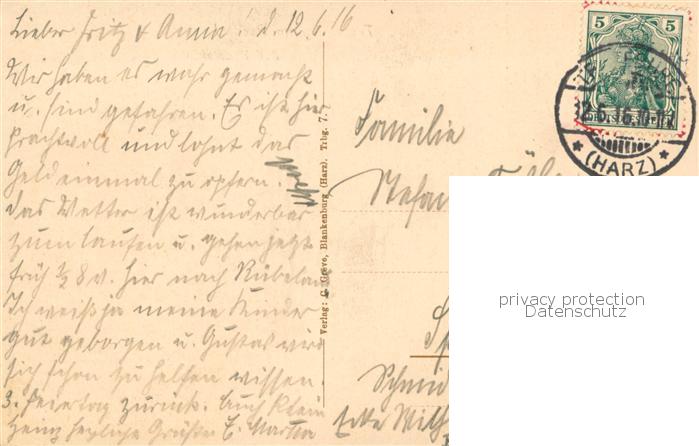 Lieber Fritz u Anna. d. 12.6.16
Wir haben es wahr gemacht
u. sind gefahren. Es ist hier
prachtvoll und lohnt das
Geld einmal zu opfern.
das Wetter ist wunderbar
zum laufen u. gehen jetzt
früh ½ 8 v. hier nach Rübeland
Ich weiß ja meine Kinder
gut geborgen u. Gustav wird
sich schon zu helfen wissen.
3. Feiertag zurück. Auch klein
Heinz herzliche Grüße E. Martha
Verlag: C. Greve, Blankenburg (Harz). Trbg. 7.
Familie
5 5
DEUTSCHES REICH
(HARZ)
privacy protection
Datenschutz